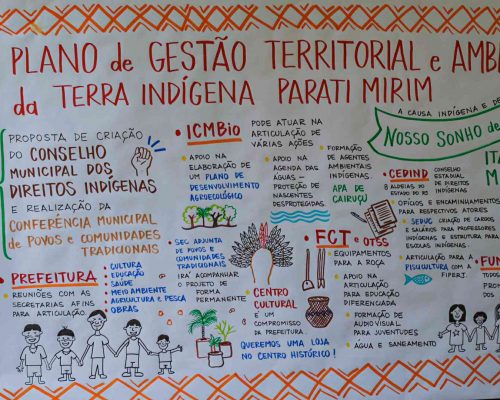 PLANO de GESTÃO TERRITORIAL e AMB
da TERRA INDÍGENA PARATI MIRIM
PROPOSTA DE CRIAÇÃO
DO CONSELHO
MUNICIPAL DOS
DIREITOS INDÍGENAS
E REALIZAÇÃO DA
CONFERÊNCIA MUNICIPAL
DE POVOS E COMUNIDADES
TRADICIONAIS
• PREFEITURA:
• REUNIÕES COM AS
SECRETARIAS AFINS
PARA ARTICULAÇÃO
• CULTURA
• EDUCAÇÃO
• SAÚDE
• MEIO AMBIENTE
• AGRICULTURA E PESCA
• OBRAS
• ICMBio
PODE ATUAR NA
ARTICULAÇÃO DE
VÁRIAS AÇÕES
• APOIO NA
ELABORAÇÃO DE
UM PLANO DE
DESENVOLVIMENTO
AGROECOLÓGICO
• APOIO NA
AGENDA DAS
ÁGUAS -
PROTEÇÃO DE
NASCENTES
DESPROTEGIDAS
• FORMAÇÃO
DE AGENTES
AMBIENTAIS
INDÍGENAS
APA DE
CAIRUÇU
• SEC. ADJUNTA
DE POVOS E
COMUNIDADES
TRADICIONAIS
IRÁ ACOMPANHAR
O PROJETO DE
FORMA
PERMANENTE
• CENTRO
CULTURAL
É UM
COMPROMISSO
DA PREFEITURA.
QUEREMOS UMA LOJA
NO CENTRO HISTÓRICO!
• FCT e OTSS
• EQUIPAMENTOS
PARA A ROÇA
• APOIO NA
ARTICULAÇÃO
PARA EDUCAÇÃO
DIFERENCIADA
• FORMAÇÃO DE
AUDIOVISUAL
PARA JUVENTUDES
• ÁGUA E SANEAMENTO
A CAUSA INDÍGENA É DE
NOSSO SONHO de
• CEDIND
8 ALDEIAS DO
ESTADO DO RJ
CONSELHO
ESTADUAL
DE DIREITOS
INDÍGENAS
• OFÍCIOS E ENCAMINHAMENTOS
PARA RESPECTIVOS ATORES
• SEDUC CRIAÇÃO DE CARGOS
E SALÁRIOS PARA PROFESSORES
INDÍGENAS E ESTRUTURA PARA
ESCOLAS INDÍGENAS
• ARTICULAÇÃO PARA A
PISCICULTURA COM A
FIPERJ.
ITA
M
• FUN